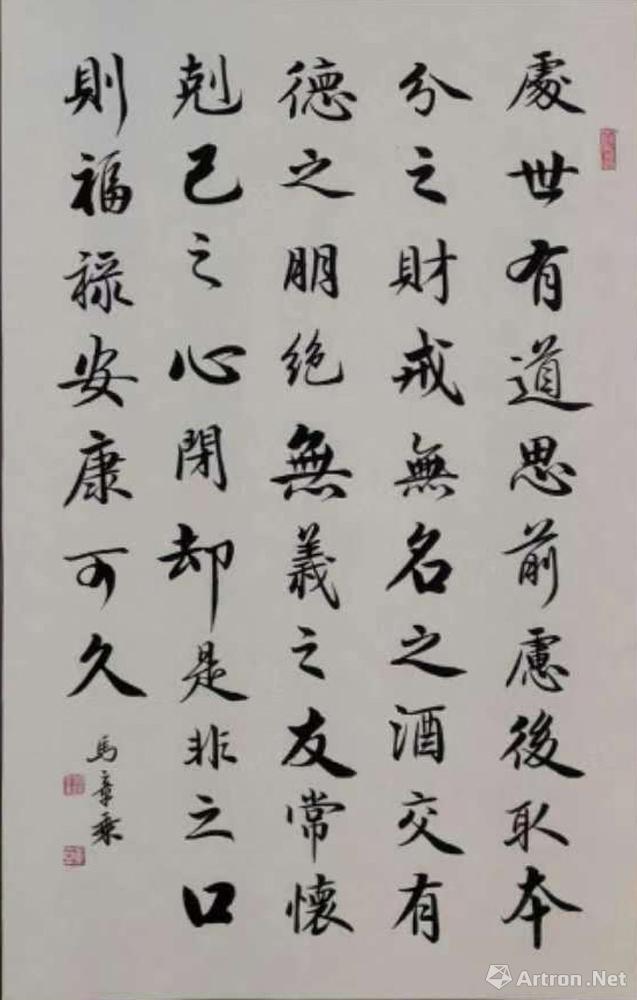 處世有道思前慮後取本
分之財戒無名之酒交有
德之朋絕無義之友常懷
剋己之心閉却是非之口
則福祿安康可久
馬章乘
Artron.Net